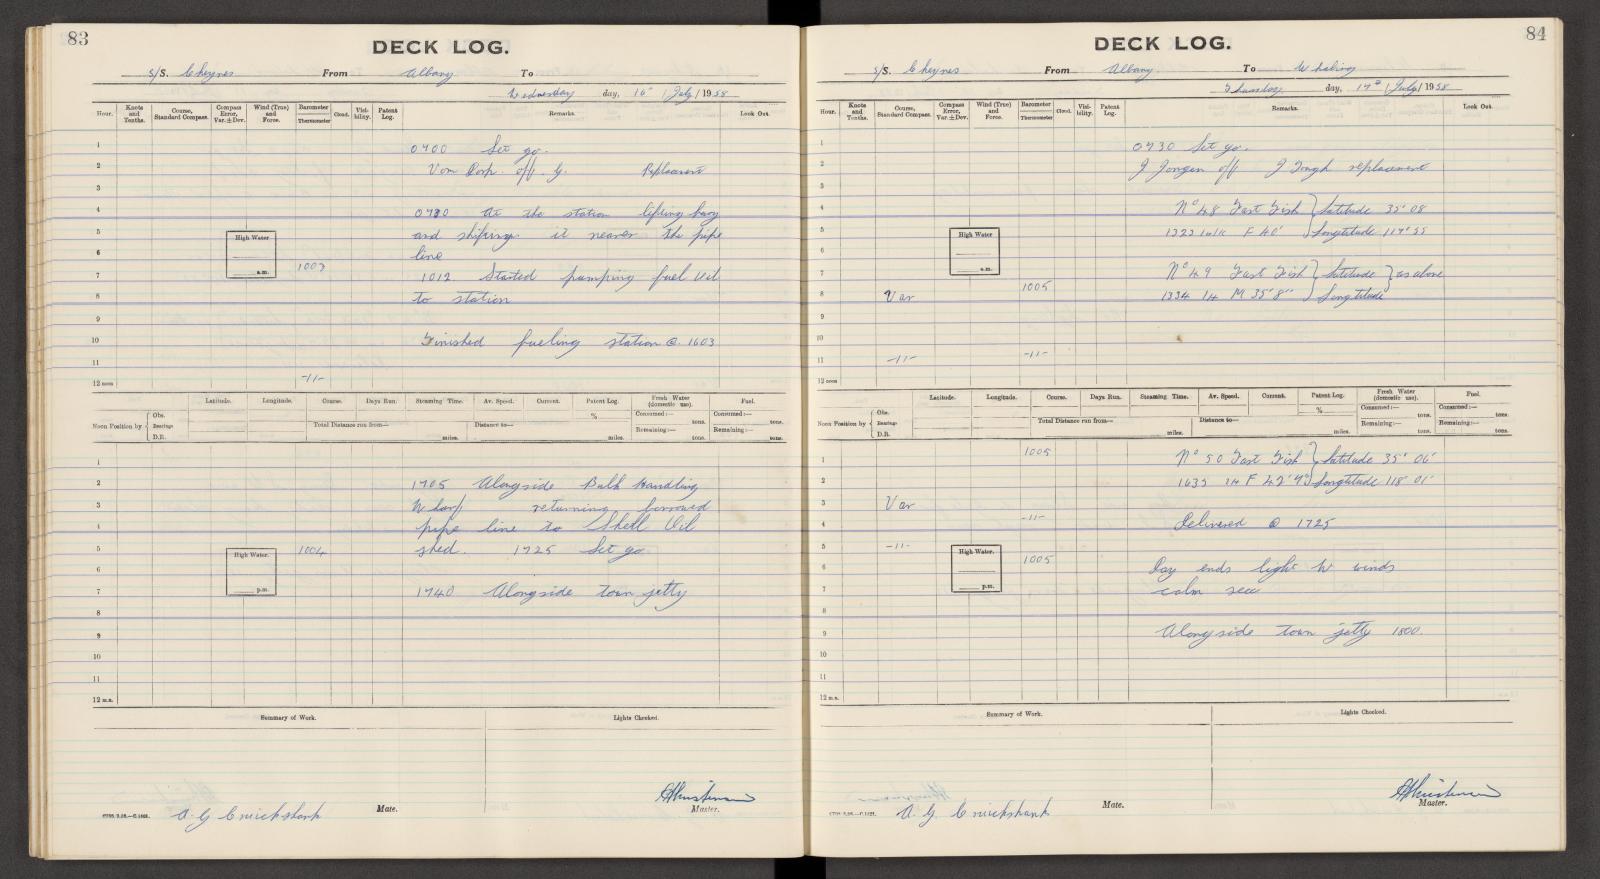 83
DECK LOG.
S/S. Cheynes From Albany To
Wednesday day, 16th / July / 1958
Hour. Knots and Tenths. Course, Standard Compass. Compass Error, Var. ± Dev. Wind (True) and Force. Barometer Thermometer Cloud. Visibility. Patent Log. Remarks. Look Out.
1 0700 Set go.
2 Van Dorp. off. G. Replacement
3
4 0730 At the station lifting buoy
5 and shifting it nearer the pipe
High Water
6 line
a.m.
7 1007 1012 Started pumping fuel oil
8 to station
9
10 Finished fueling station @ 1603
11
12 noon -11-
Latitude. Longitude. Course. Days Run. Steaming Time. Av. Speed. Current. Patent Log. Fresh Water (domestic use). Fuel.
Noon Position by Obs. Bearings D.R. Total Distance run from— miles. Distance to— miles. % Consumed:— tons. Remaining:— tons. Consumed:— tons. Remaining:— tons.
1
2 1705 Alongside Bulk Handling
3 Wharf returning borrowed
4 pipe line to Shell Oil
5 1004 shed. 1725 Set go
High Water.
6
p.m.
7 1740 Alongside town jetty
8
9
10
11
12 m.n.
Summary of Work. Lights Checked.
A. G. Cruickshank Mate.
Christensen Master.
84
DECK LOG.
S/S. Cheynes From Albany To Whaling
Thursday day, 17th / July / 1958
Hour. Knots and Tenths. Course, Standard Compass. Compass Error, Var. ± Dev. Wind (True) and Force. Barometer Thermometer Cloud. Visibility. Patent Log. Remarks. Look Out.
1 0730 Set go.
2 J Jongen off J Tough replacement
3
4 No 48 Fast Fish } Latitude 35° 08
5 1323 F 40' } Longtitude 117° 55
High Water
6
a.m.
7 No 49 Fast Fish } Latitude } as above
8 Var 1005 1334 14 M 35' 8" } Longtitude
9
10
11 -11- -11-
12 noon
Latitude. Longitude. Course. Days Run. Steaming Time. Av. Speed. Current. Patent Log. Fresh Water (domestic use). Fuel.
Noon Position by Obs. Bearings D.R. Total Distance run from— miles. Distance to— miles. % Consumed:— tons. Remaining:— tons. Consumed:— tons. Remaining:— tons.
1 1005 No 50 Fast Fish } Latitude 35° 06'
2 1635 14 F 42' 9" } Longtitude 118° 01'
3 Var
4 -11- Delivered @ 1725
5 -11-
High Water.
6 1005 Day ends light W winds
p.m.
7 calm sea
8
9 Alongside town jetty 1800.
10
11
12 m.n.
Summary of Work. Lights Checked.
A. G. Cruickshank Mate.
Christensen Master.